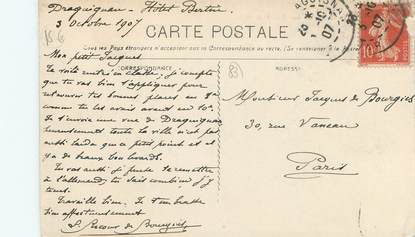 Draguignan - Hôtel Bertin
3 Octobre 1907
CARTE POSTALE
Tous les Pays étrangers n'acceptent pas la Correspondance au recto. (Se renseigner à la Poste)
CORRESPONDANCE
ADRESSE
Mon petit Jacques
Te voilà rentré en classe, je compte
que tu vas bien t'appliquer pour
retrouver tes bonnes places
comme tu les avais avant
Je t'envoie une vue de Draguignan
heureusement toute la ville n'est pas
aussi laide que ce petit point et il
y a de beaux boulevards.
Tu vas aussi je pense te remettre
à l'allemand, tu sais combien j'y
tiens.
Travaille bien. Je t'embrasse
bien affectueusement
de Bourgies
Monsieur Jacques de Bourgies
30, rue Vaneau
Paris
83
10
07